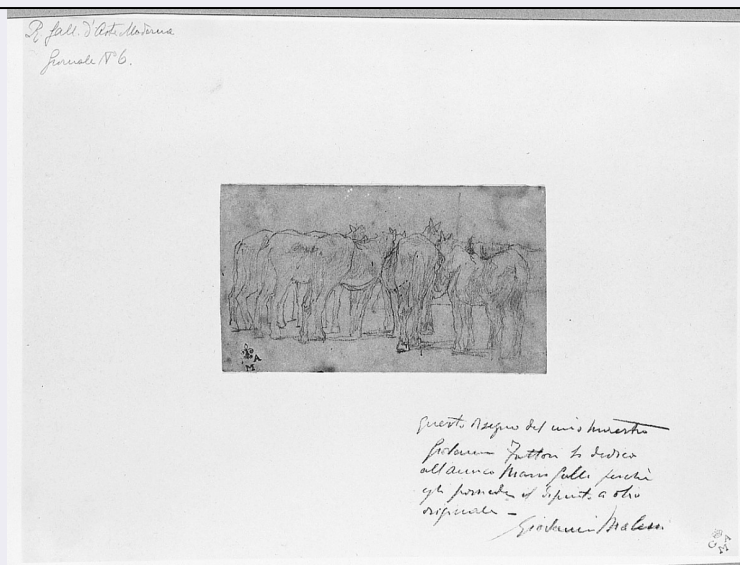 R. Gall. d'Arte Moderna
Giornale N° 6.
A
M
questo disegno del mio Maestro
Giovanni Fattori lo dedico
all'amico Mario Galli perchè
egli possiede il dipinto a olio
originale –
Giovanni Malesci
G
M A